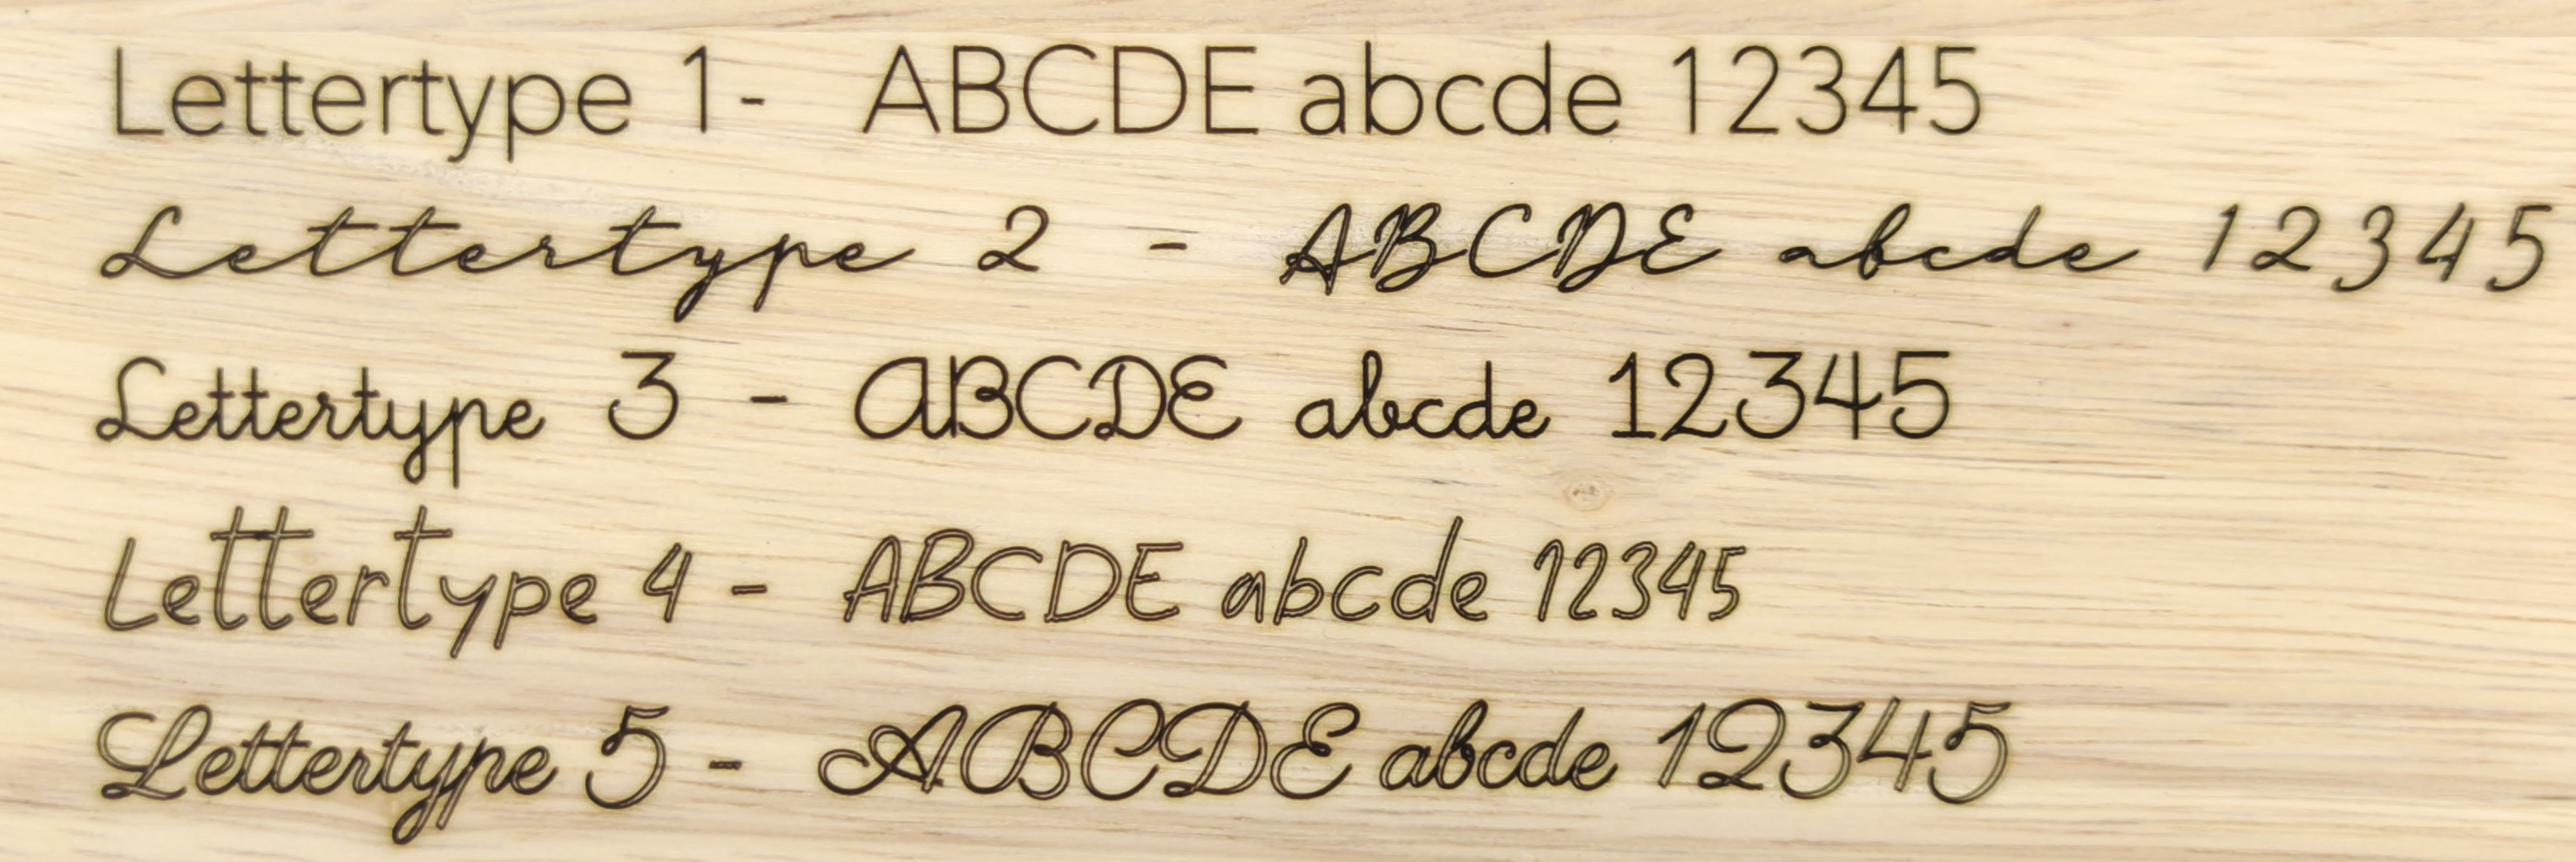 Lettertype 1 - ABCDE abcde 12345
Lettertype 2 - ABCDE abcde 12345
Lettertype 3 - ABCDE abcde 12345
Lettertype 4 - ABCDE abcde 12345
Lettertype 5 - ABCDE abcde 12345